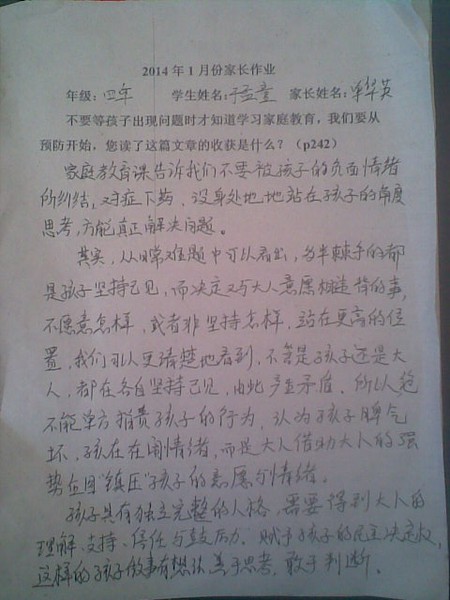 2014年1月份家长作业
年级：四年 学生姓名：于孟童 家长姓名：单华英
不要等孩子出现问题时才知道学习家庭教育，我们要从
预防开始，您读了这篇文章的收获是什么？（p242）
家庭教育课告诉我们不要被孩子的负面情绪
所纠结，对症下药，设身处地地站在孩子的角度
思考，方能真正解决问题。
其实，从日常难题中可以看出，多半棘手的都
是孩子坚持己见，而决定又与大人意愿相违背的事，
不愿意怎样，或者非坚持怎样，站在更高的位
置，我们可以更清楚地看到，不管是孩子还是大
人，都在各自坚持己见，由此产生矛盾。所以绝
不能单方指责孩子的行为，认为孩子脾气
坏，孩子在闹情绪，而是大人借助大人的强
势企图"镇压"孩子的意愿与情绪。
孩子具有独立完整的人格，需要得到大人的
理解、支持、信任与鼓励。赋予孩子的民主决定权，
这样的孩子做事有想法，善于思考，敢于判断。